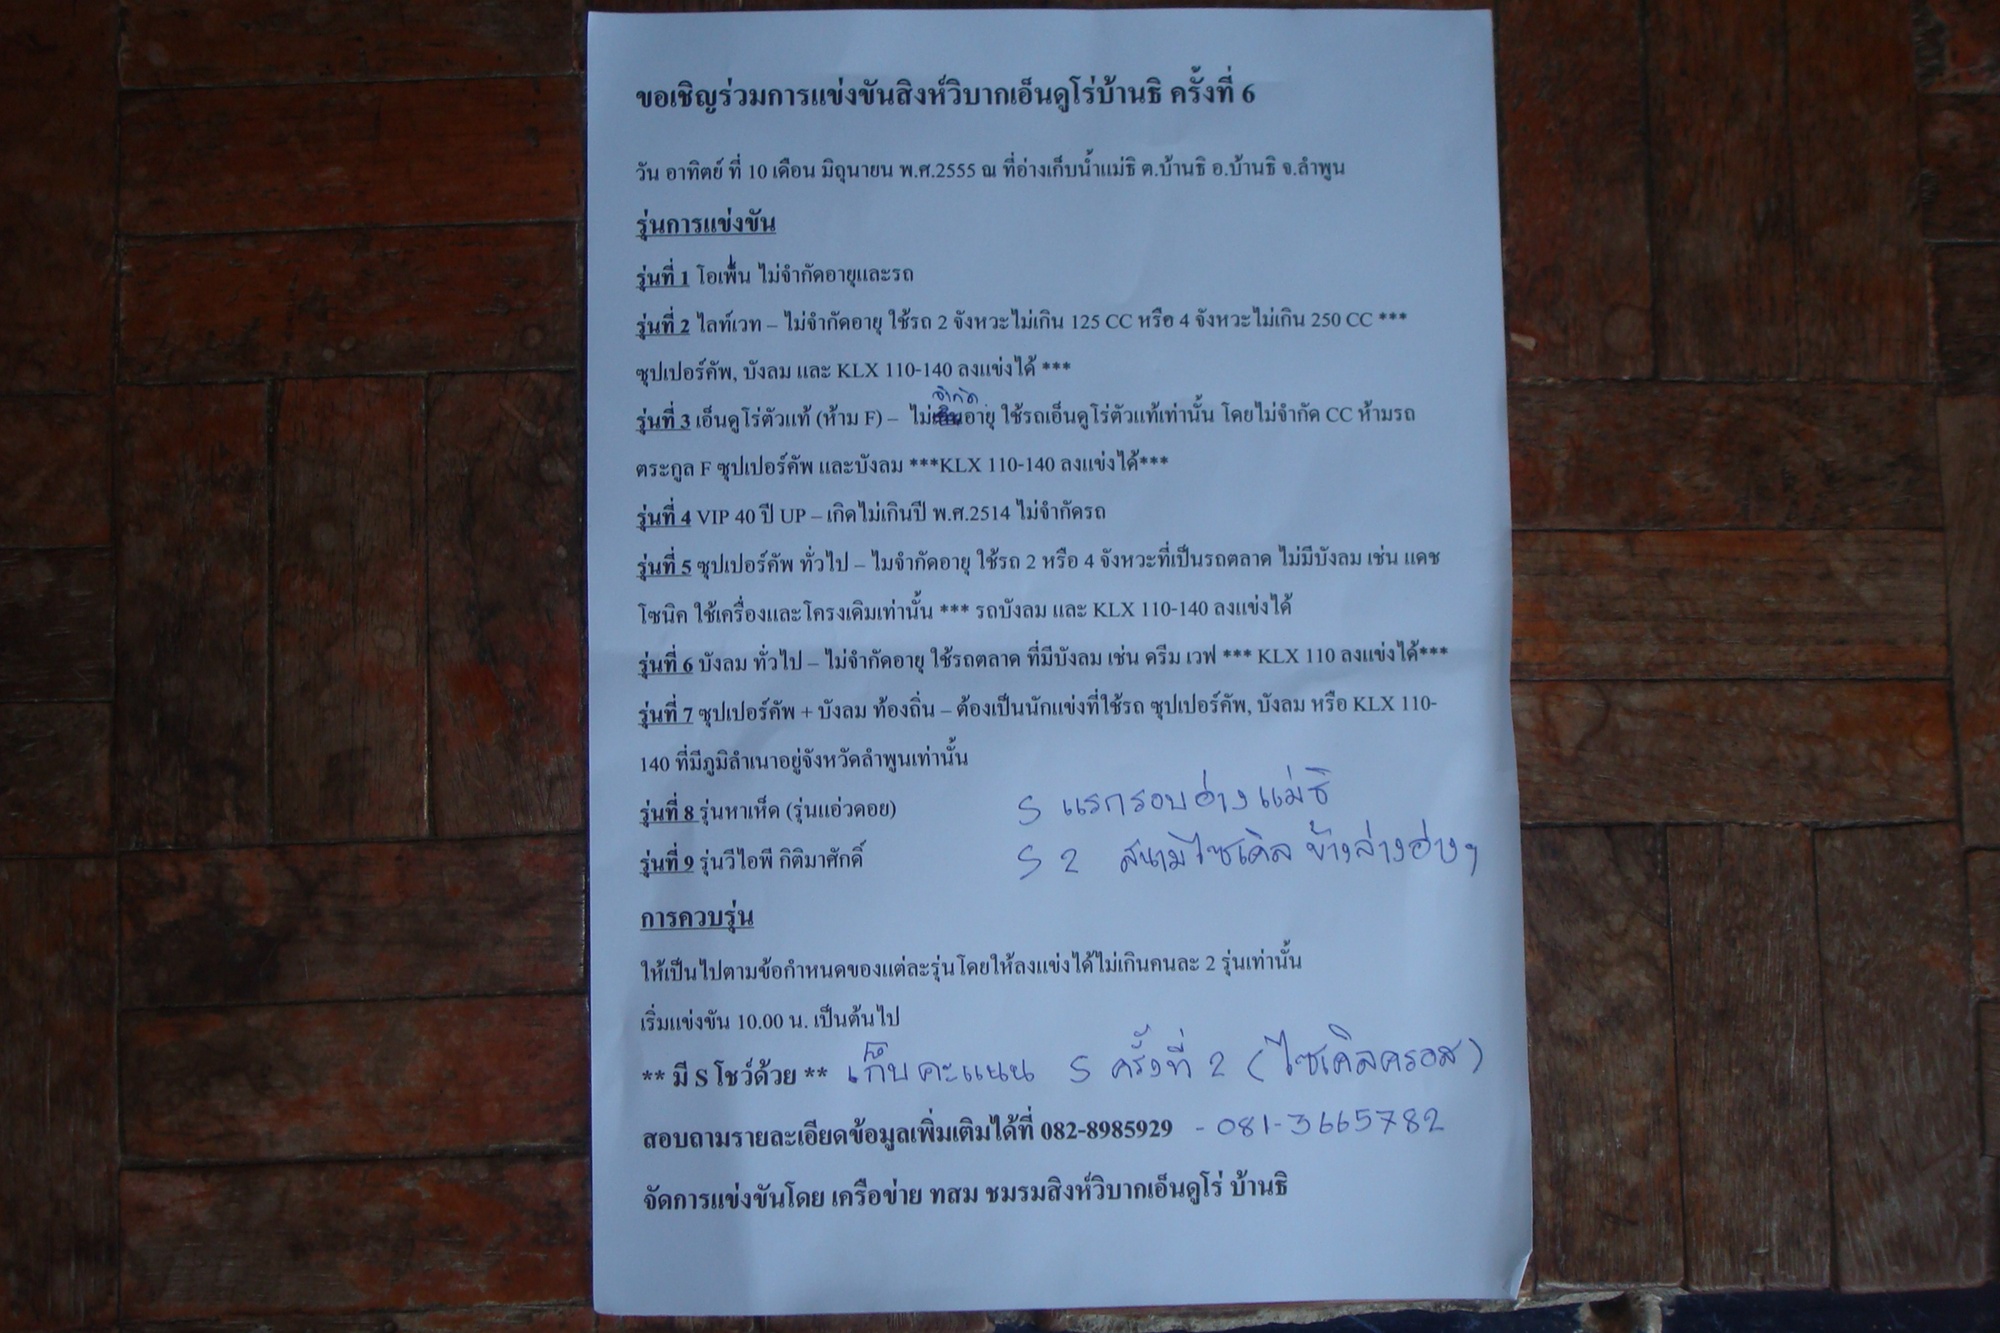 ขอเชิญร่วมการแข่งขันสิงห์วิบากเอ็นดูโร่บ้านธิ ครั้งที่ 6
วัน อาทิตย์ ที่ 10 เดือน มิถุนายน พ.ศ.2555 ณ ที่อ่างเก็บน้ำแม่ธิ ต.บ้านธิ อ.บ้านธิ จ.ลำพูน
รุ่นการแข่งขัน
รุ่นที่ 1 โอเพ่น ไม่จำกัดอายุและรถ
รุ่นที่ 2 ไลท์เวท – ไม่จำกัดอายุ ใช้รถ 2 จังหวะไม่เกิน 125 CC หรือ 4 จังหวะไม่เกิน 250 CC ***
ซุปเปอร์คัพ, บังลม และ KLX 110-140 ลงแข่งได้ ***
รุ่นที่ 3 เอ็นดูโร่ตัวแท้ (ห้าม F) – ไม่จำกัดอายุ ใช้รถเอ็นดูโร่ตัวแท้เท่านั้น โดยไม่จำกัด CC ห้ามรถ
ตระกูล F ซุปเปอร์คัพ และบังลม ***KLX 110-140 ลงแข่งได้***
รุ่นที่ 4 VIP 40 ปี UP – เกิดไม่เกินปี พ.ศ.2514 ไม่จำกัดรถ
รุ่นที่ 5 ซุปเปอร์คัพ ทั่วไป – ไมจำกัดอายุ ใช้รถ 2 หรือ 4 จังหวะที่เป็นรถตลาด ไม่มีบังลม เช่น แดช
โซนิค ใช้เครื่องและโครงเดิมเท่านั้น *** รถบังลม และ KLX 110-140 ลงแข่งได้
รุ่นที่ 6 บังลม ทั่วไป – ไม่จำกัดอายุ ใช้รถตลาด ที่มีบังลม เช่น ดรีม เวฟ *** KLX 110 ลงแข่งได้***
รุ่นที่ 7 ซุปเปอร์คัพ + บังลม ท้องถิ่น – ต้องเป็นนักแข่งที่ใช้รถ ซุปเปอร์คัพ, บังลม หรือ KLX 110-
140 ที่มีภูมิลำเนาอยู่จังหวัดลำพูนเท่านั้น
รุ่นที่ 8 รุ่นหาเห็ด (รุ่นแอ่วดอย) S แรกรอบอ่างแม่ธิ
รุ่นที่ 9 รุ่นวีไอพี กิติมาศักดิ์ S 2 สนามไซเคิล ข้างล่างอ่างฯ
การควบรุ่น
ให้เป็นไปตามข้อกำหนดของแต่ละรุ่นโดยให้ลงแข่งได้ไม่เกินคนละ 2 รุ่นเท่านั้น
เริ่มแข่งขัน 10.00 น. เป็นต้นไป
** มี S โชว์ด้วย ** เก็บคะแนน S ครั้งที่ 2 (ไซเคิลครอส)
สอบถามรายละเอียดข้อมูลเพิ่มเติมได้ที่ 082-8985929 - 081-3665782
จัดการแข่งขันโดย เครือข่าย ทสม ชมรมสิงห์วิบากเอ็นดูโร่ บ้านธิ